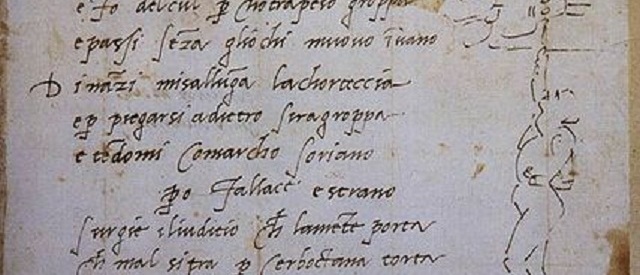 e fo del cul p chōtrapeso groppa
e passi sēza gliochi muovo īvano
Dināzi misallūga lachorteccia
e p piegarsi adietro siragroppa
e tēdomi comarcho soriano
po fallace e strano
surgie iliudicio ch lamēte porta
ch mal sitra p cerboctana torta